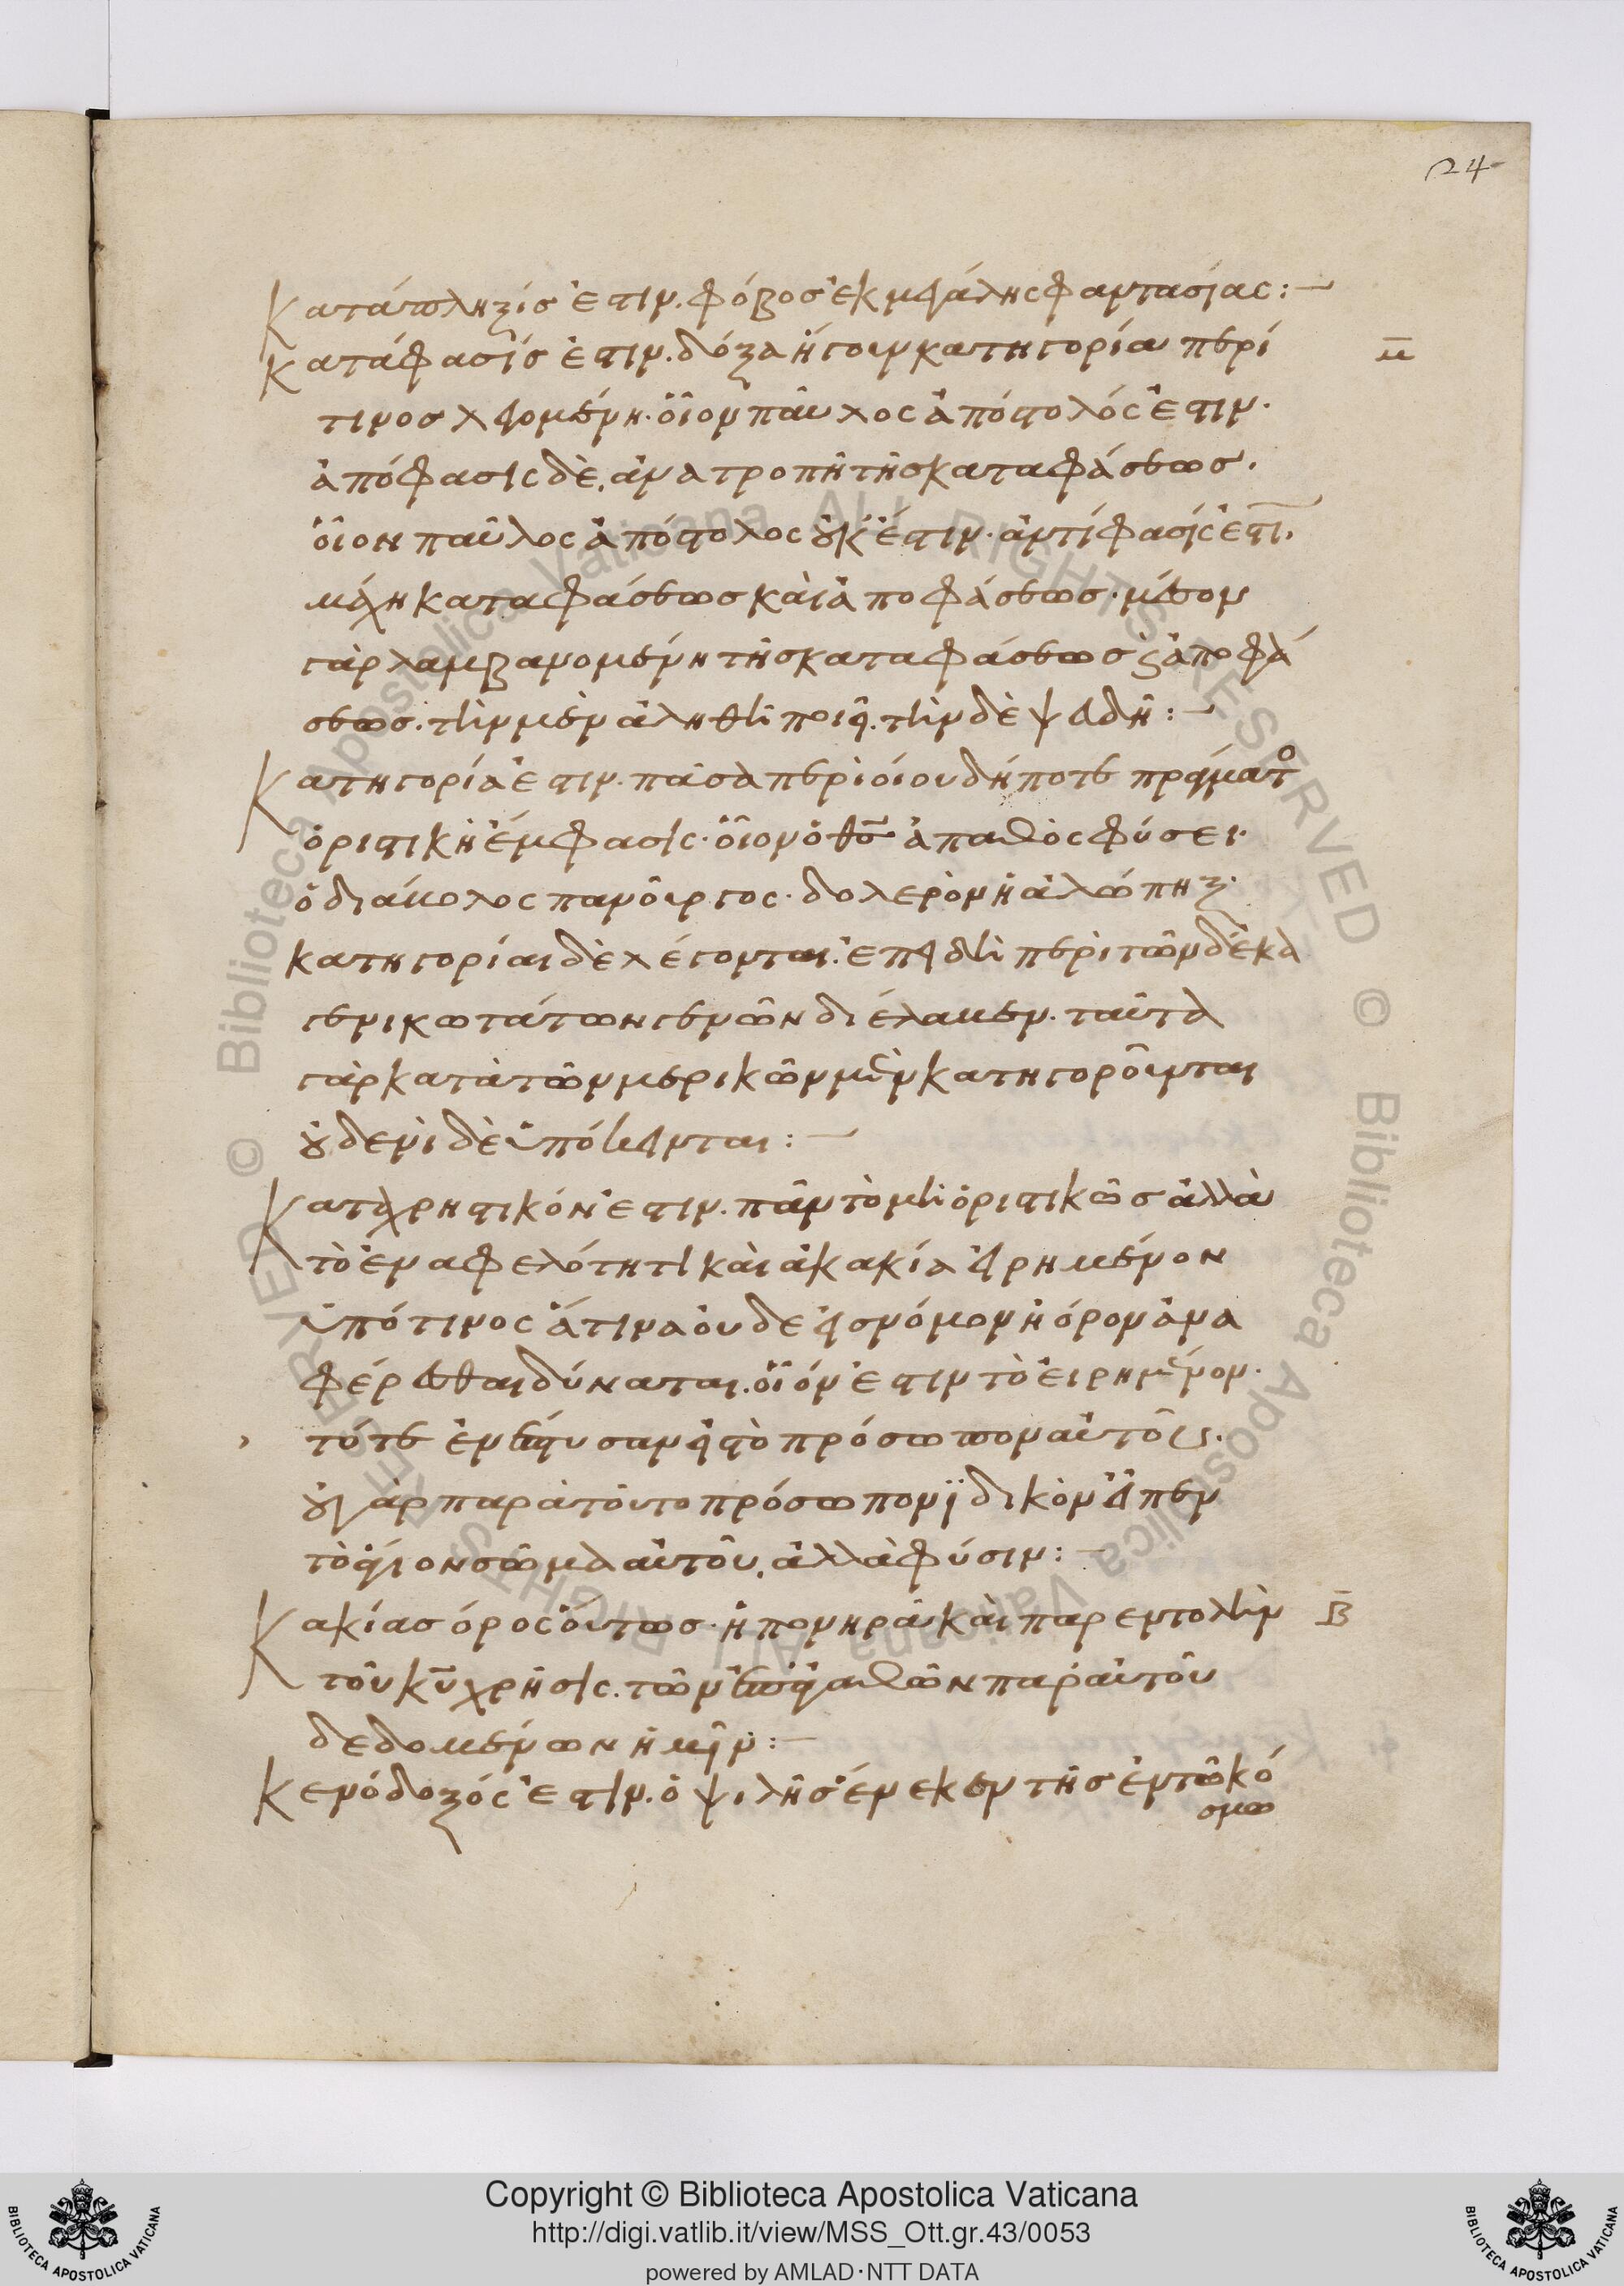 24
Κατάπληξίς ἐστιν. φόβος ἐκ μεγάλης φαντασίας :–
Κατάφασίς ἐστιν. δόξα ἤγουν κατηγορία περί
τινος λεγομένη. οἷον παῦλος ἀπόστολός ἐστιν.
ἀπόφασις δὲ, ἀνατροπὴ τῆς καταφάσεως.
οἷον παῦλος ἀπόστολος οὐκ ἔστιν. ἀντίφασίς ἐστι.
μάχη καταφάσεως καὶ ἀποφάσεως. μέσον
γὰρ λαμβανομένη τῆς καταφάσεως ϛ ἀποφά
σεως. τὴν μὲν ἀληθῆ ποιεῖ. τὴν δὲ ψευδῆ :–
Κατηγορία ἐστιν. πᾶσα περὶ οἱουδήποτε πράγματο
ὁριστικὴ ἔμφασις. οἷον ὁ θς ἀπαθὸς φύσει.
ὁ διάβολος πανοῦργος. δολερὸν ἡ ἀλώπηξ.
κατηγορίαι δὲ λέγονται. ἐπειδὴ περὶ τῶν δέκα
γενικωτάτων γενῶν διέλαβεν. ταῦτα
γὰρ κατὰ τῶν μερικῶν μὲν κατηγοροῦνται
οὐδενὶ δὲ ὑπόκεινται :–
Καταχρηστικόν ἐστιν. πᾶν τὸ μὴ ὁριστικῶς ἀλλὰ
τὸ ἐν ἀφελότητι καὶ ἀκακία εἰρημένον
ὑπό τινος ἅτινα οὐδε εἰς νόμον ἢ ὅρον ἀνα
φέρεσθαι δύναται. οἷόν ἐστιν τὸ εἰρημένον.
τότε ἐνέπτυσαν εἰς τὸ πρόσωπον αὐτοῦ.
οὐ γὰρ παρὰ τοῦτο πρόσωπον ϊδικὸν εἶπεν
τὸ ἅγιον σῶμα αὐτοῦ, ἀλλὰ φύσιν :–
Κακίας ὅρος οὕτως. ἡ πονηρὰ καὶ παρ ἐντολὴν
τοῦ κυ χρῆσις. τῶν ἐπ' ἀγαθῶν παρ αὐτοῦ
δεδομένων ἡμῖν :–
Κενόδοξός ἐστιν. ὁ ψιλῆς ἕνεκεν τῆς ἐν τῶ κό
σμω
Β
Copyright © Biblioteca Apostolica Vaticana
http://digi.vatlib.it/view/MSS_Ott.gr.43/0053
powered by AMLAD·NTT DATA
BIBLIOTECA APOSTOLICA VATICANA
BIBLIOTECA APOSTOLICA VATICANA
© Biblioteca Apostolica Vaticana ALL RIGHTS RESERVED
© Biblioteca Apostolica Vaticana ALL RIGHTS RESERVED